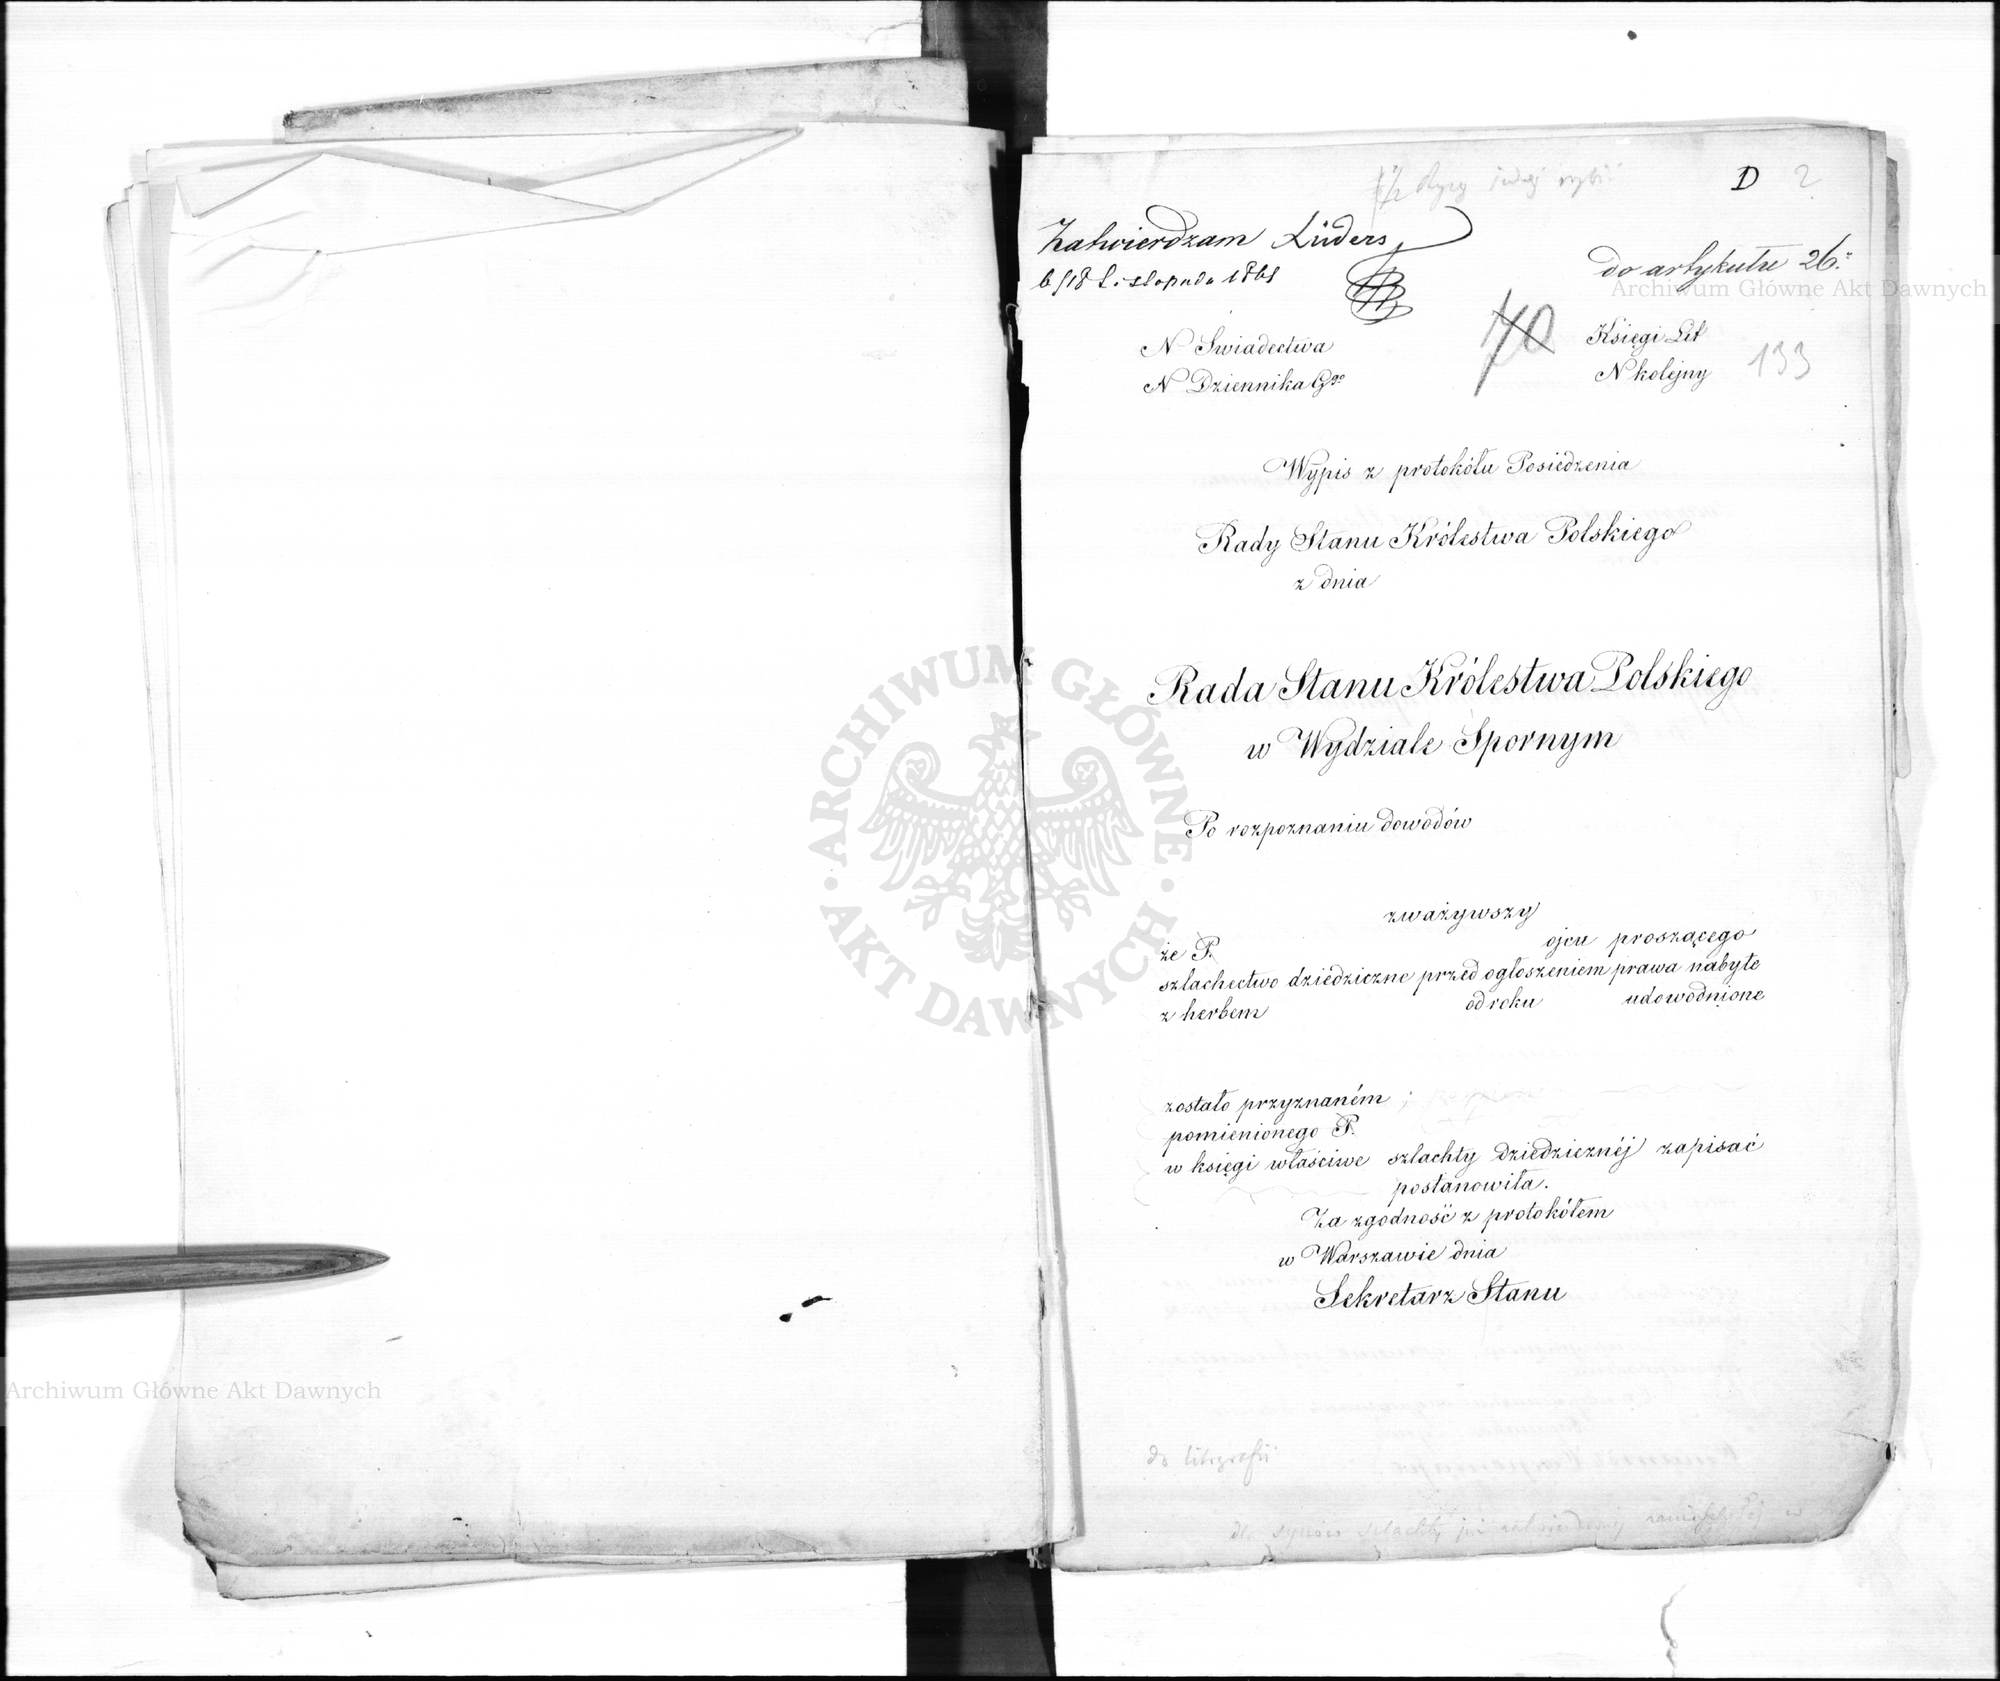 D 2
Zatwierdzam Lüders
6/18 Listopada 1861
do artykułu 26.
Archiwum Główne Akt Dawnych
70
N Swiadectwa
Księgi Lit
N Dziennika Ggo
N kolejny 133
Wypis z protokółu Posiedzenia
Rady Stanu Królestwa Polskiego
z dnia
Rada Stanu Królestwa Polskiego
w Wydziale Spornym
Po rozpoznaniu dowodów
zważywszy
że P. ojcu proszącego
szlachectwo dziedziczne przed ogłoszeniem prawa nabyte
z herbem od roku udowodnione
zostało przyznaném ;
pomienionego P.
w księgi właściwe szlachty dziedzicznéj zapisać
postanowiła.
Za zgodność z protokółem
w Warszawie dnia
Sekretarz Stanu
do litografii
dla synów szlachty w
ARCHIWUM GŁÓWNE
AKT DAWNYCH
Archiwum Główne Akt Dawnych